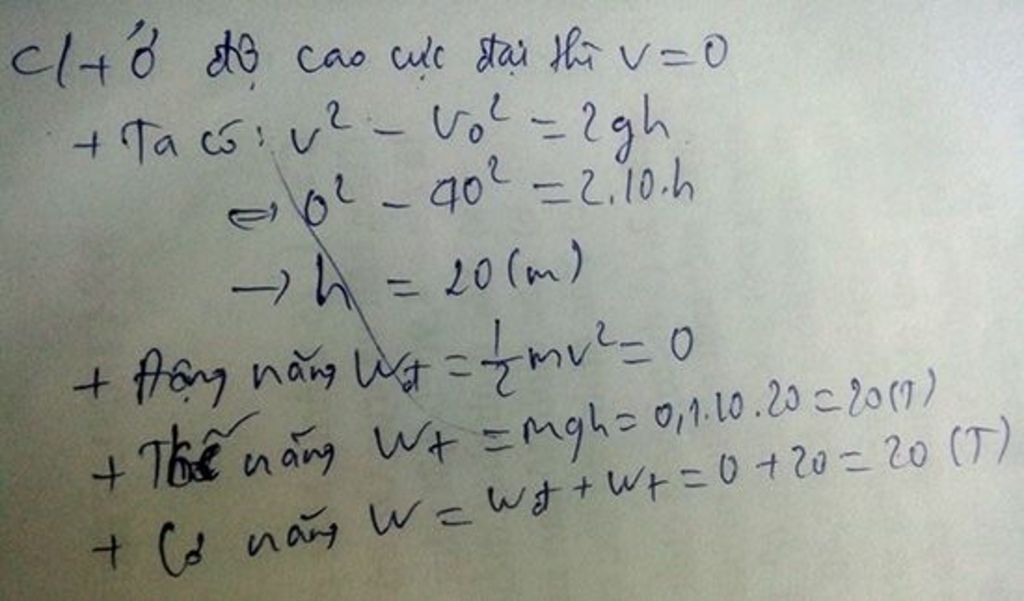 c/ + Ở độ cao cực đại thì v = 0
+ Ta có: v² - v₀² = 2gh
⇔ 0² - 40² = 2.10.h
→ h = 20 (m)
+ Động năng Wđ = 1/2 mv² = 0
+ Thế năng Wt = mgh = 0,1.10.20 = 20 (J)
+ Cơ năng W = Wđ + Wt = 0 + 20 = 20 (J)